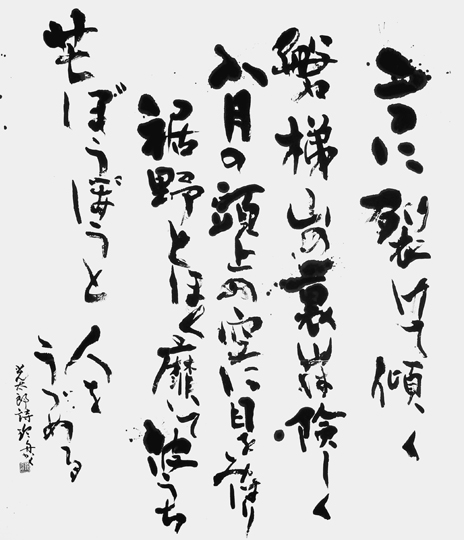 二つに裂けて傾く
磐梯山の裏山は険しく
八月の頭上の空に目をみはり
裾野とほく靡いて波うち
芒ぼうぼうと
人をうづめる
光太郎詩